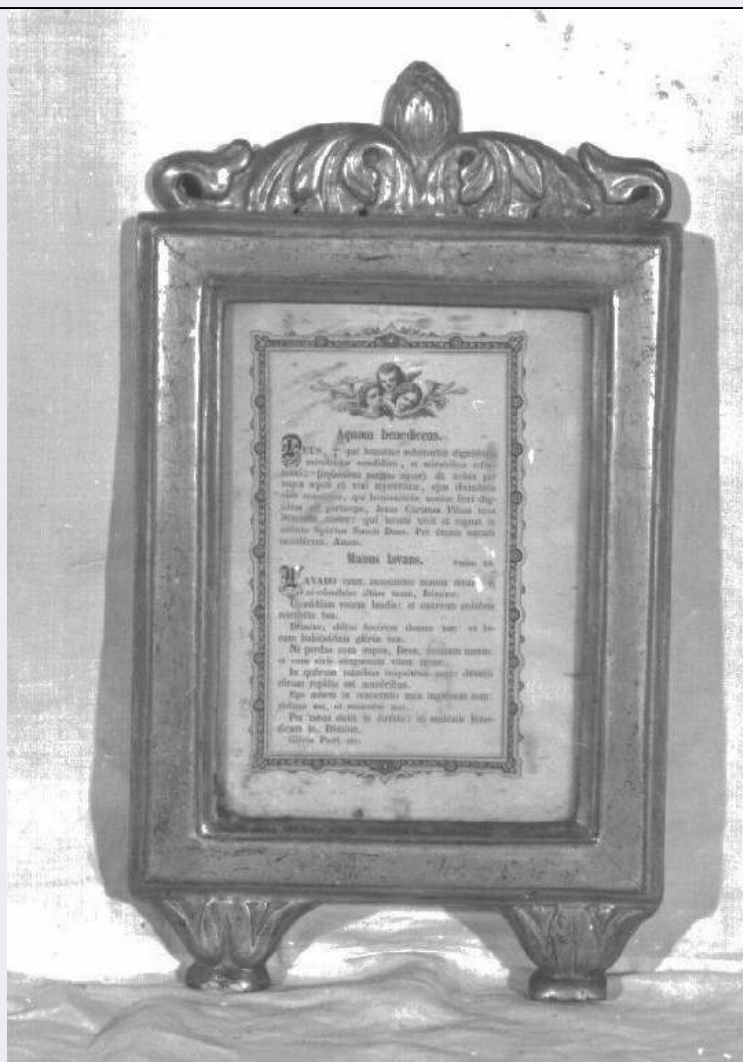 Aquam benedicens.
DEUS, qui humanæ substantiæ dignitatem
mirabiliter condidisti, et mirabilius refor-
da nobis per
hujus aquæ et vini mysterium, ejus divinitatis
esse consortes, qui humanitatis nostræ fieri dig-
natus est particeps, Jesus Christus Filius tuus
Dominus noster: qui tecum vivit et regnat in
unitate Spiritus Sancti Deus. Per omnia sæcula
sæculorum. Amen.
Manus lavans. Psalm. 25
LAVABO inter innocentes manus meas: et
circúmdabo altáre tuum, Dómine.
Ut áudiam vocem laudis: et enárrem univérsa
mirabília tua.
Dómine, diléxi decórem domus tuæ: et lo-
cum habitatiónis glóriæ tuæ.
Ne perdas cum ímpiis, Deus, ánimam meam:
et cum viris sánguinum vitam meam.
In quórum mánibus iniquitátes sunt: déxtera
eórum repléta est munéribus.
Ego autem in innocéntia mea ingréssus sum:
rédime me, et miserére mei.
Pes meus stetit in dirécto: in ecclésiis bene-
dícam te, Dómine.
Glória Patri etc.